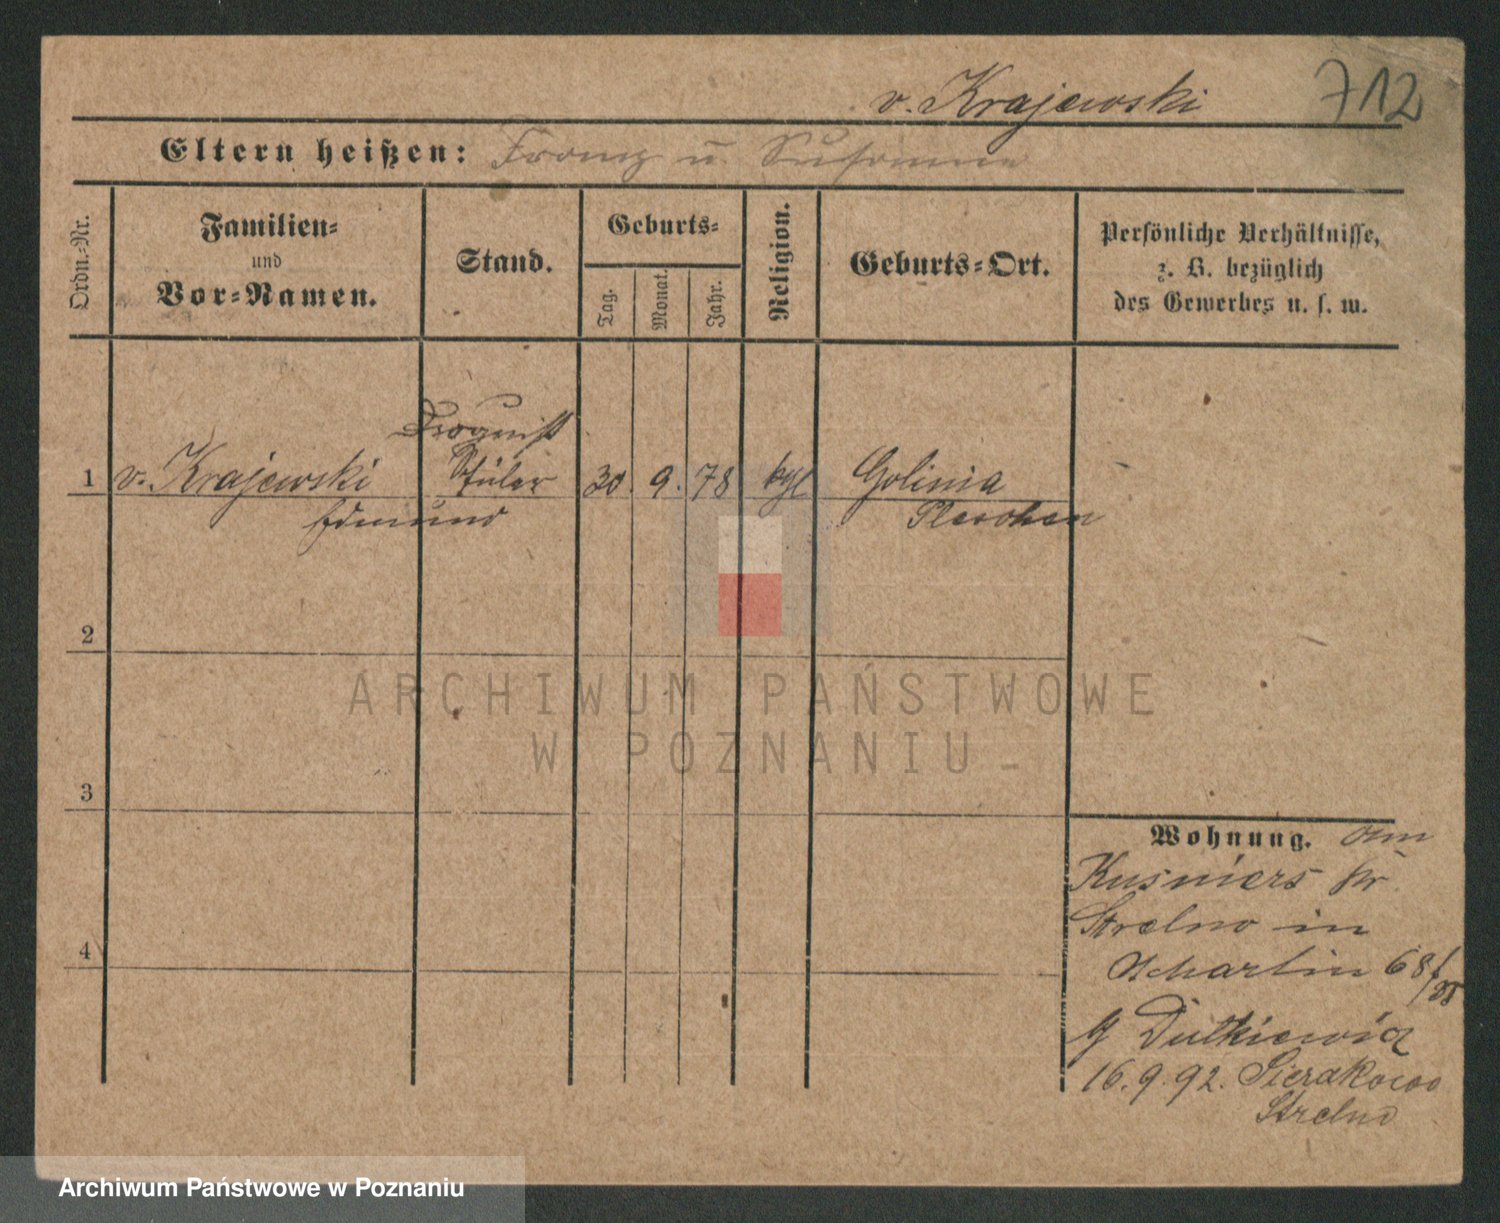 v. Krajewski 712
Eltern heißen: Franz u. Susanna
Ordn.-Nr.
Familien-
und
Vor-Namen.
Stand.
Geburts-
Tag.
Monat.
Jahr.
Religion.
Geburts-Ort.
Persönliche Verhältnisse,
z. B. bezüglich
des Gewerbes u. s. w.
Droguist
1 v. Krajewski Schüler 30. 9. 78 kgl Golinia
Edmund Pleschen
2
3
4
Wohnung.
Kusniers
Strelno in
Scharlin 68/
G Dutkiewicz
16. 9. 92. Sierakowo
Strelno
ARCHIWUM PAŃSTWOWE
W POZNANIU
Archiwum Państwowe w Poznaniu